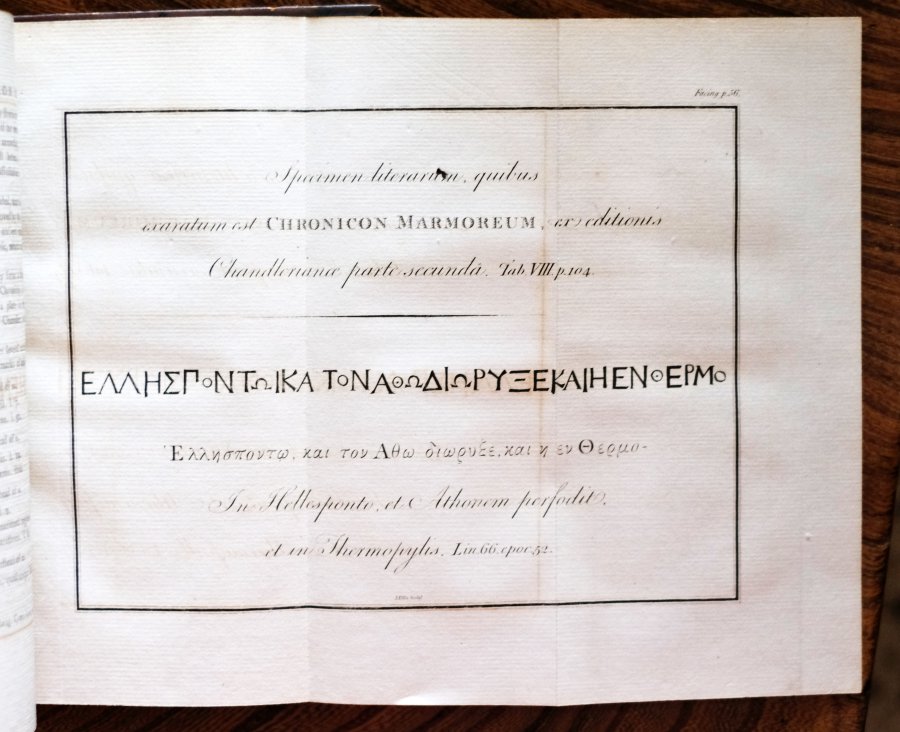 Facing p.56.
Specimen literarum, quibus
exaratum est CHRONICON MARMOREUM, ex editionis
Chandlerianæ parte secundâ. Tab. VIII. p. 104.
ΕΛΛΗΣΠΟΝΤΩΙΚΑ ΤΟΝΑΘΩΔΙΩΡΥΞΕΚΑΙΗΕΝΘΕΡΜΟ
Ἑλλησποντῳ, και τον Αθω διωρυξε, και η εν Θερμο-
In Hellesponto, et Athonem perfodit,
et in Thermopylis. Lin. 66. epoc. 52.